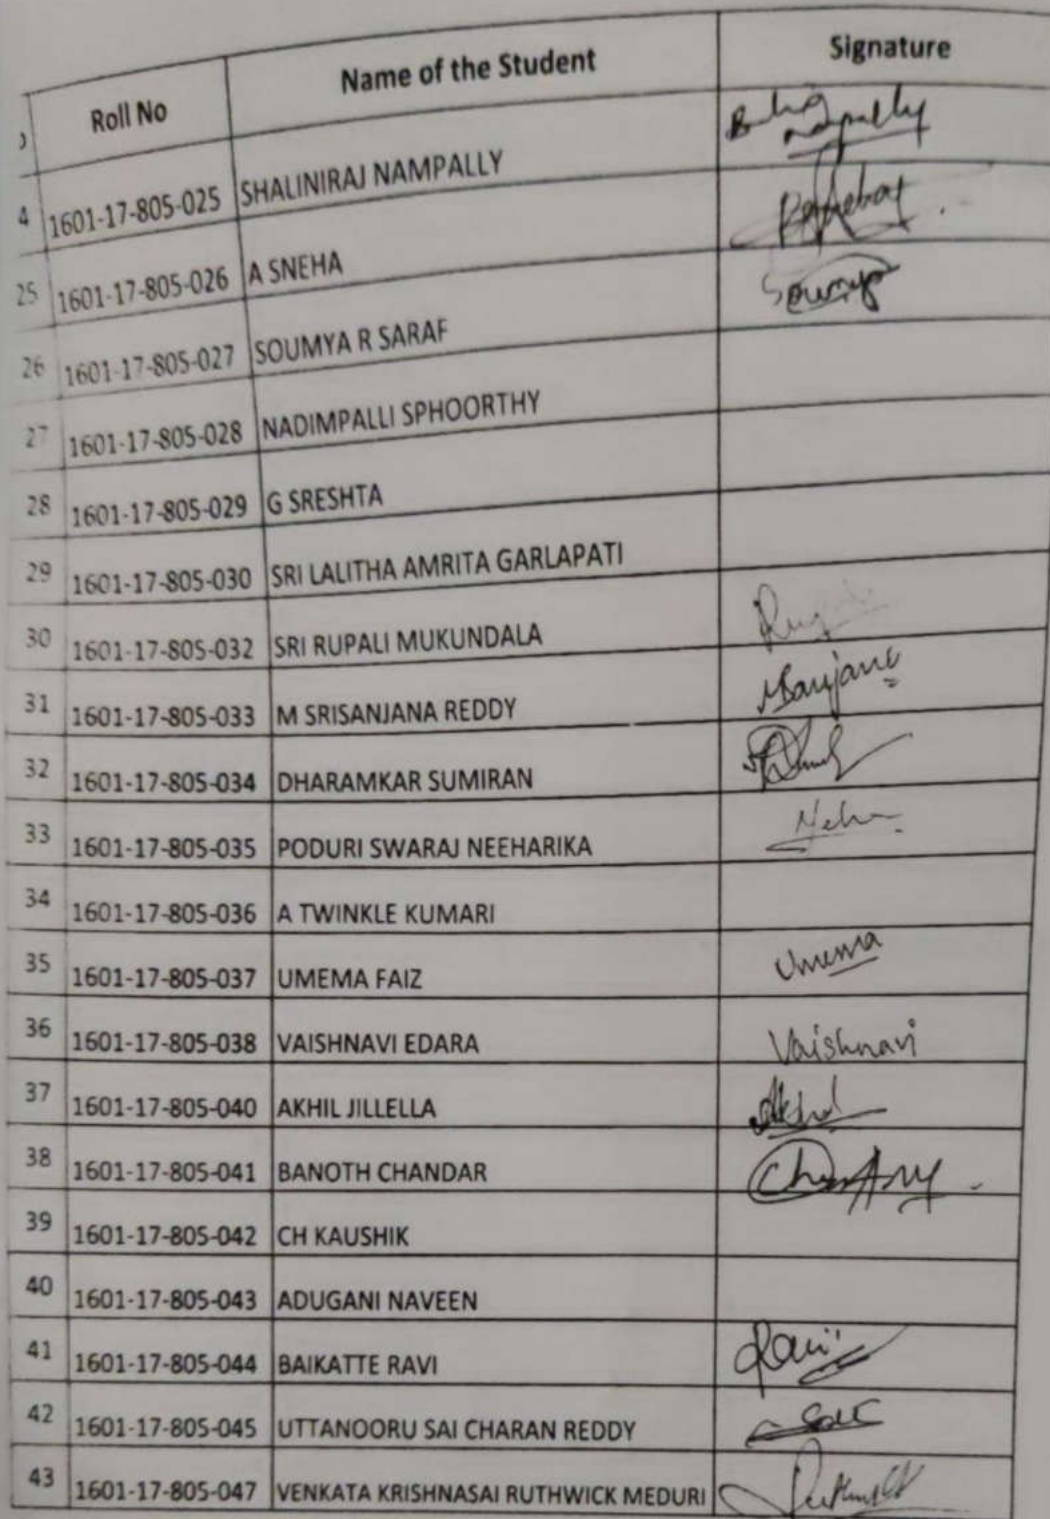 Roll No Name of the Student Signature
4 1601-17-805-025 SHALINIRAJ NAMPALLY nampally
25 1601-17-805-026 A SNEHA
26 1601-17-805-027 SOUMYA R SARAF Soumya
27 1601-17-805-028 NADIMPALLI SPHOORTHY
28 1601-17-805-029 G SRESHTA
29 1601-17-805-030 SRI LALITHA AMRITA GARLAPATI
30 1601-17-805-032 SRI RUPALI MUKUNDALA
31 1601-17-805-033 M SRISANJANA REDDY
32 1601-17-805-034 DHARAMKAR SUMIRAN
33 1601-17-805-035 PODURI SWARAJ NEEHARIKA Neha
34 1601-17-805-036 A TWINKLE KUMARI
35 1601-17-805-037 UMEMA FAIZ Umema
36 1601-17-805-038 VAISHNAVI EDARA Vaishnavi
37 1601-17-805-040 AKHIL JILLELLA Akhil
38 1601-17-805-041 BANOTH CHANDAR
39 1601-17-805-042 CH KAUSHIK
40 1601-17-805-043 ADUGANI NAVEEN
41 1601-17-805-044 BAIKATTE RAVI Ravi
42 1601-17-805-045 UTTANOORU SAI CHARAN REDDY
43 1601-17-805-047 VENKATA KRISHNASAI RUTHWICK MEDURI